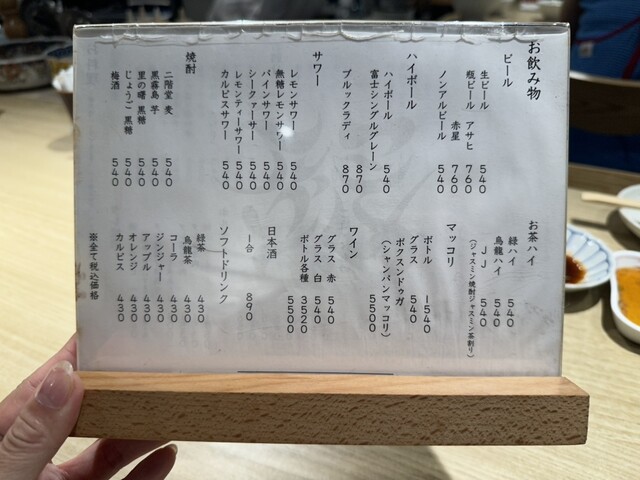 お飲み物
ビール
生ビール 540
瓶ビール アサヒ 760
赤星 760
ノンアルビール 540
ハイボール
ハイボール 540
富士シングルグレーン 870
ブルックラディ 870
サワー
レモンサワー 540
無糖レモンサワー 540
パインサワー 540
シークァーサー 540
レモンティーサワー 540
カルピスサワー 540
焼酎
二階堂 麦 540
黒霧島 芋 540
里の曙 黒糖 540
じょうご 黒糖 540
梅酒 540
お茶ハイ
緑ハイ 540
烏龍ハイ 540
JJ 540
(ジャスミン焼酎ジャスミン茶割り)
マッコリ
ボトル 1540
グラス 540
ボクスンドゥガ 5500
(シャンパンマッコリ)
ワイン
グラス 赤 540
グラス 白 540
ボトル各種 3520
5500
日本酒
一合 890
ソフトドリンク
緑茶 430
烏龍茶 430
コーラ 430
ジンジャー 430
アップル 430
オレンジ 430
カルピス 430
※全て税込価格